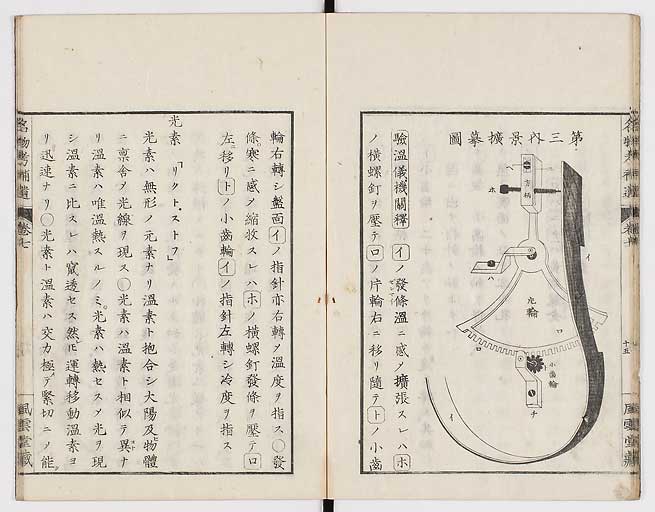 第三內景擴摹圖
ホ
方柄
ハ
イ
片輪
ロ
ロ
小齒輪
チ
イ
驗溫儀機關釋 イノ發條溫ニ感ノ擴張スレハホ
ノ橫螺釘ヲ壓テロノ片輪右ニ移リ隨テトノ小齒
十五
風雲堂藏
輪右轉シ盤面イノ指針亦右轉ノ溫度ヲ指ス○發
條寒ニ感ノ縮收スレハホノ橫螺釘發條ヲ壓テロ
左移リトノ小齒輪イノ指針左轉シ冷度ヲ指ス
光素 「リクト、ストフ」
光素ハ無形ノ元素ナリ溫素ト抱合シ大陽及ヒ物體
ニ稟舍ノ光線ヲ現ス○光素ハ溫素ト相似テ異ナ
リ溫素ハ唯溫熱スルノミ光素ハ熱セスノ光ヲ現
シ溫素ニ比スレハ竄透セス然𪜈運轉移動溫素ヨ
リ迅速ナリ○光素ト溫素ハ交力極テ緊切ニノ能
卷七
風雲堂藏